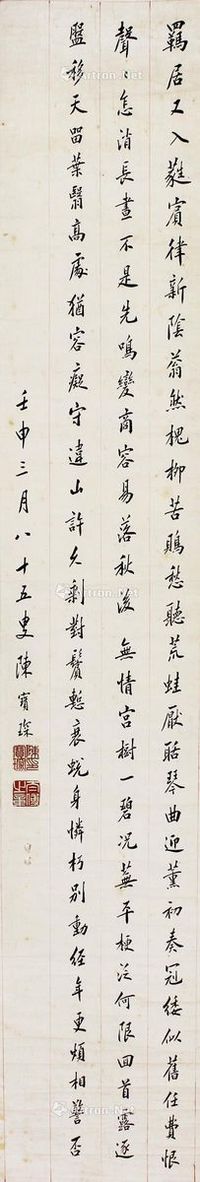 羈居又入蕤賓律新陰蓊然槐柳苦鴂愁聽荒蛙厭聒琴曲迎薰初奏冠緌似舊任費恨
聲〻怎消長晝不是先鳴變商容易落秋後 無情宮樹一碧況蕪平梗泛何限回首露逐
盤移天畱葉翳高處猶容癡守違山許久剩對鬢慙衰蛻身憐朽別動經年更煩相警否
壬申三月八十五叟陳寶琛